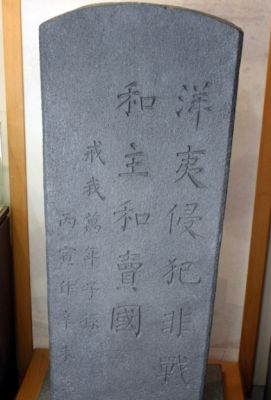 洋夷侵犯非戰
和主和賣國
戒我萬年子孫
丙寅作辛未